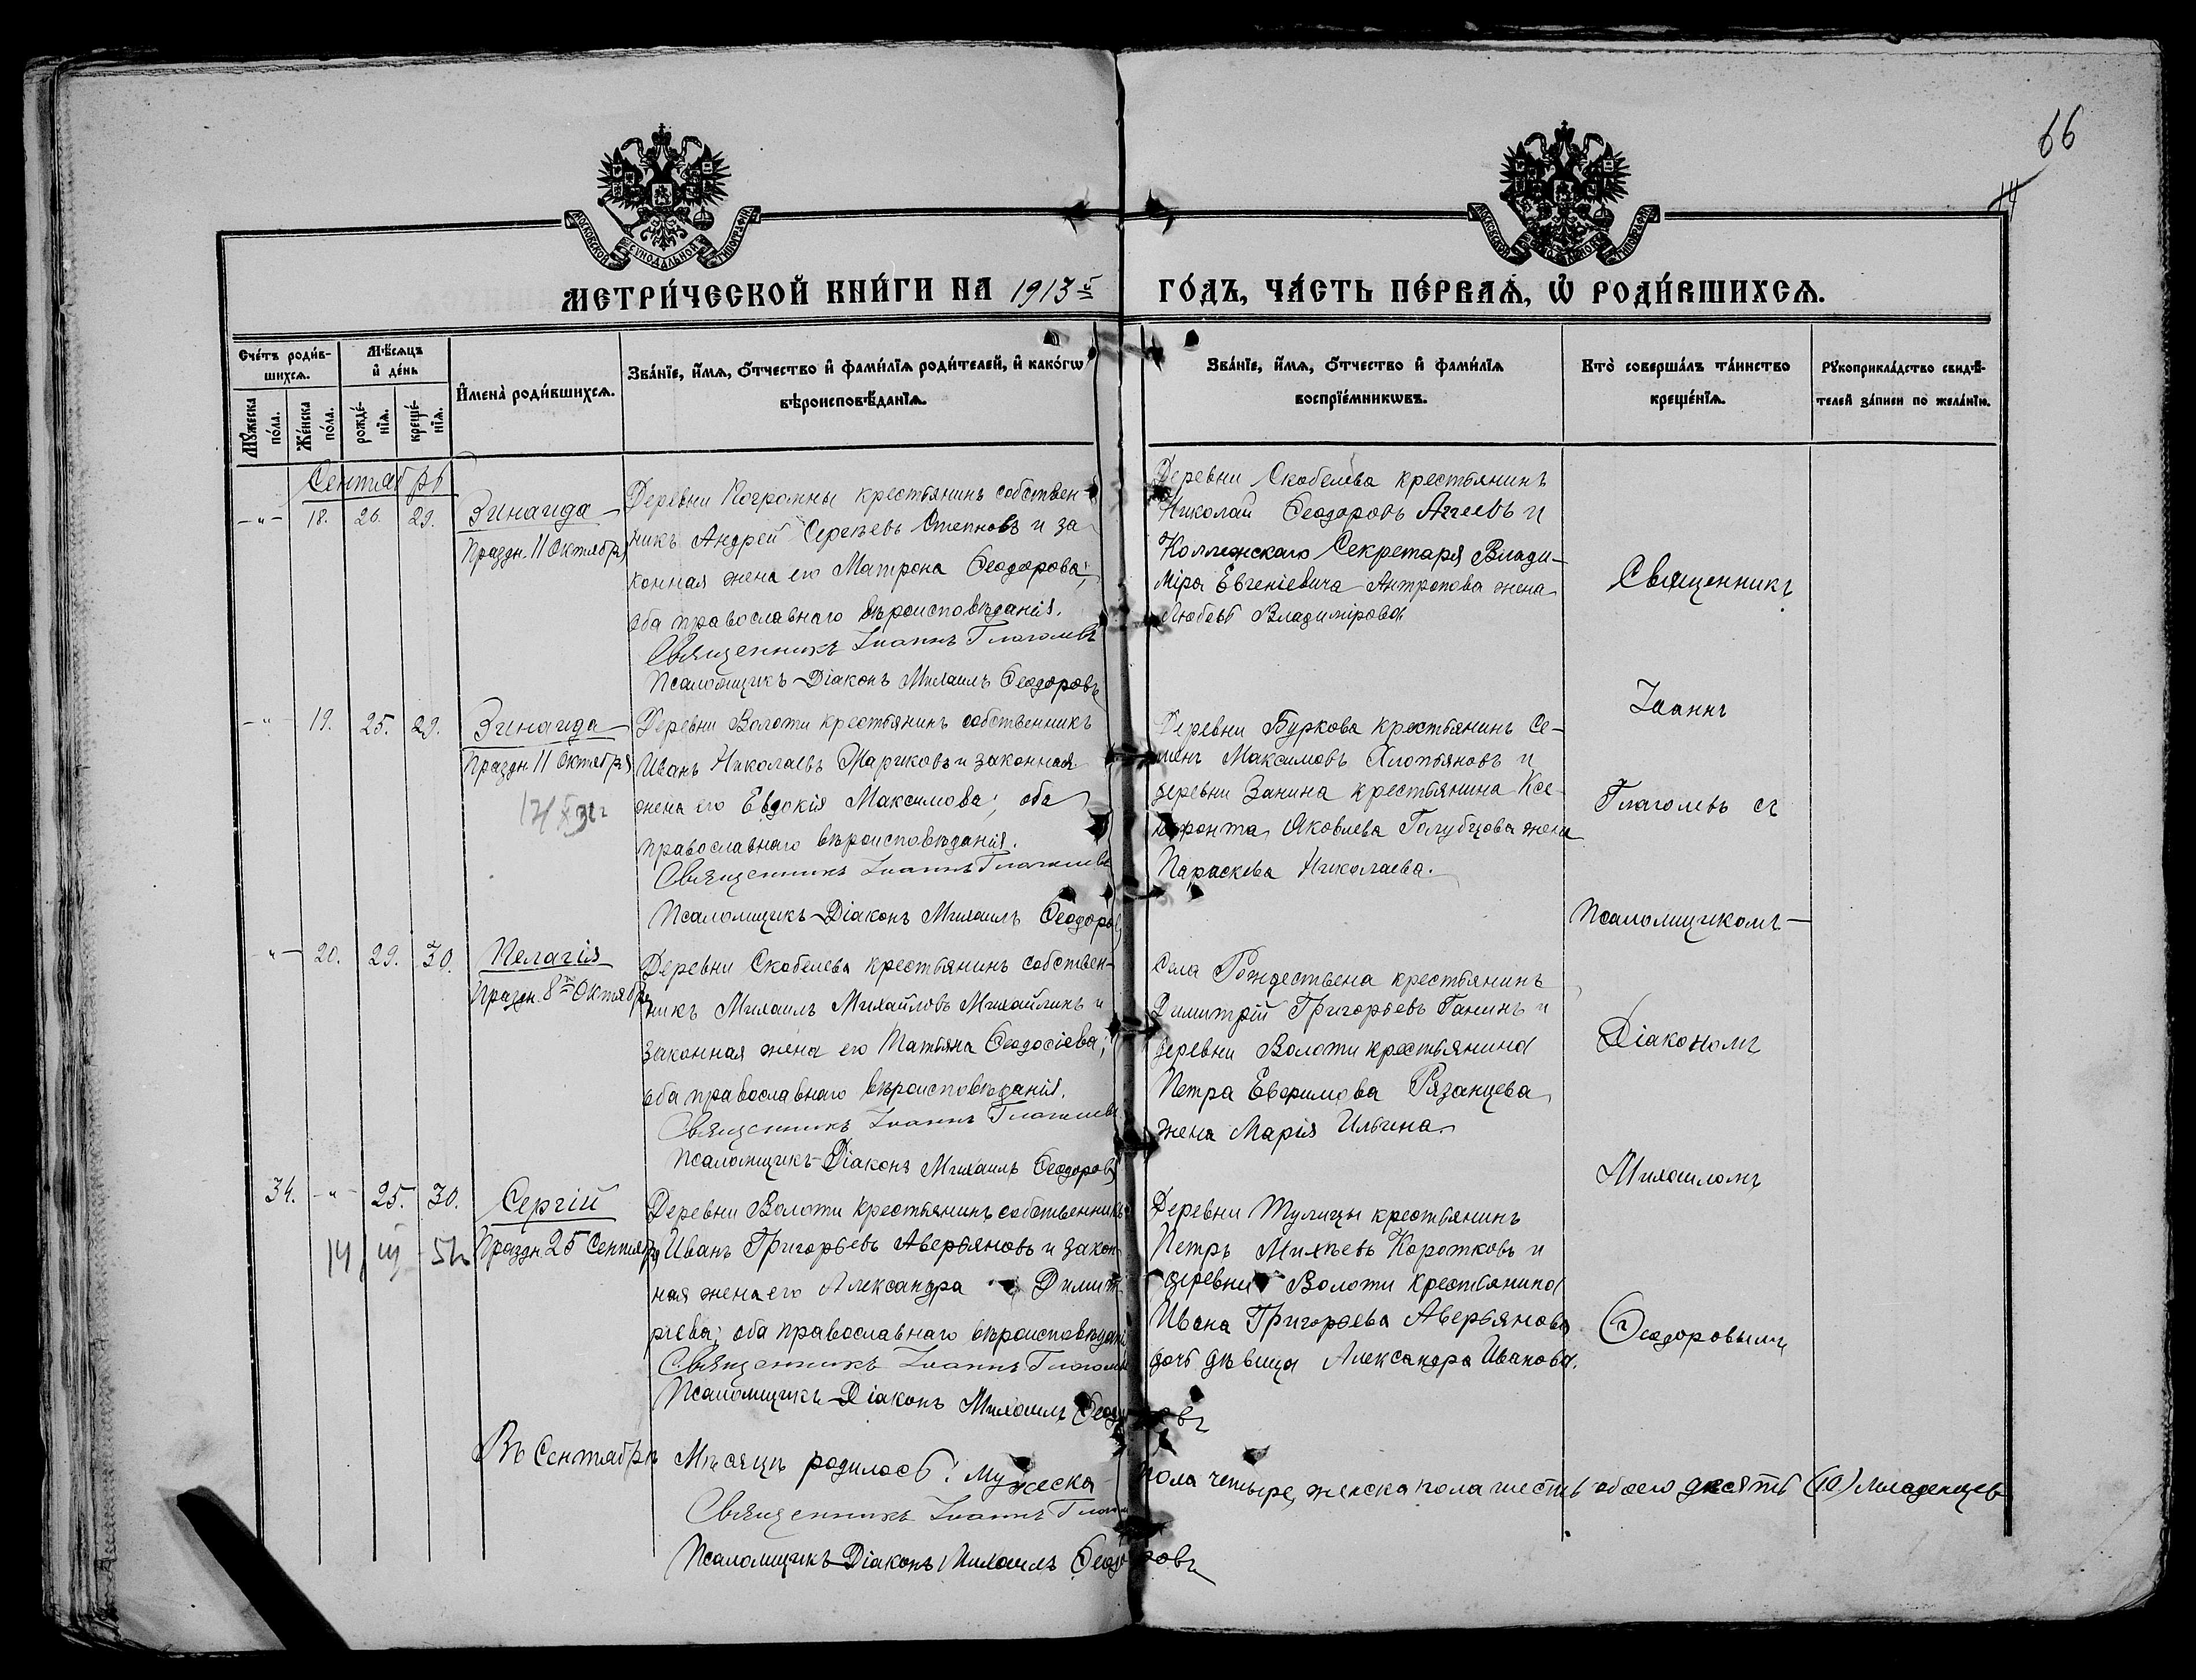 66
14
МОСКОВСКОЙ СѴНОДАЛЬНОЙ ТИПОГРАФІИ
МОСКОВСКОЙ СѴНОДАЛЬНОЙ ТИПОГРАФІИ
МЕТРИ́ЧЕСКОЙ КНИ́ГИ НА 1913й ГО́ДЪ, ЧА́СТЬ ПЕ́РВАѦ, Ѽ РОДИ́ВШИХСѦ.
Сче́тъ роди́в-
шихсѧ.
Мꙋ́жеска
по́ла.
Же́нска
по́ла.
Мѣ́сѧцъ
и҆ де́нь
рожде́-
нїѧ.
креще́-
нїѧ.
И҆мена̀ роди́вшихсѧ.
Зва́нїе, и҆́мѧ, о҆́тчество и҆ фами́лїѧ роди́телей, и҆ како́гѡ
вѣроисповѣ́данїѧ.
Зва́нїе, и҆́мѧ, о҆́тчество и҆ фами́лїѧ
воспрїе́мникѡвъ.
Кто̀ соверша́лъ та́инство
креще́нїѧ.
Рꙋкоприкла́дство свидѣ́-
телей за́писи по жела́нїю.
Сентябрь
-„- 18. 26. 29. Зинаида
Праздн. 11 Октября
Деревни Погромны крестьянинъ собствен-
никъ Андрей Сергѣевъ Степновъ и за-
конная жена его Матрона Ѳеодорова;
оба православнаго вѣроисповѣданія.
Священникъ Іоаннъ Глаголевъ
Псаломщикъ-Діаконъ Михаилъ Ѳеодоровъ
Деревни Скобелева крестьянинъ
Николай Ѳеодоровъ Агеевъ и
Коллежскаго Секретаря Влади-
міра Евгеніевича Антропова жена
Любовь Владимірова
-„- 19. 25. 29. Зинаида
Праздн. 11 Октября
Деревни Волоти крестьянинъ собственникъ
Иванъ Николаевъ Жариковъ и законная
жена его Евдокія Максимова; оба
православнаго вѣроисповѣданія.
Священникъ Іоаннъ Глаголевъ
Псаломщикъ-Діаконъ Михаилъ Ѳеодоров
Деревни Буркова крестьянинъ Се-
менъ Максимовъ Хлопьяновъ и
деревни Занина крестьянина Ксе-
нофонта Яковлева Голубцова жена
Параскева Николаева.
-„- 20. 29. 30. Пелагія
Праздн. 8го Октября
Деревни Скобелева крестьянинъ собствен-
никъ Михаилъ Михайловъ Михайлинъ и
законная жена его Татьяна Ѳеодосіева;
оба православнаго вѣроисповѣданія.
Священникъ Іоаннъ Глаголевъ
Псаломщикъ-Діаконъ Михаилъ Ѳеодоровъ
Села Рождествена крестьянинъ
Димитрій Григорьевъ Ганинъ и
деревни Волоти крестьянина
Петра Евфимова Рязанцева
жена Марія Ильина
34. -„- 25. 30. Сергій
Праздн. 25 Сентября
Деревни Волоти крестьянинъ собственникъ
Иванъ Григорьевъ Аверьяновъ и закон-
ная жена его Александра Димит-
ріева; оба православнаго вѣроисповѣдані
Священникъ Іоаннъ Глаголевъ
Псаломщикъ-Діаконъ Михаилъ Ѳеодоровъ
Деревни Тулицы крестьянинъ
Петръ Михѣевъ Коротковъ и
деревни Волоти крестьянина
Ивана Григорьева Аверьянова
дочь дѣвица Александра Иванова.
Священникъ
Іоаннъ
Глаголевъ съ
Псаломщикомъ-
Діакономъ
Михаиломъ
Ѳеодоровымъ
Въ Сентябрѣ Мѣсяцѣ родилось: Мужеска пола четыре, женска пола шесть обоего десять (10) младенцевъ
Священникъ Іоаннъ Глаголевъ
Псаломщикъ-Діаконъ Михаилъ Ѳеодоровъ